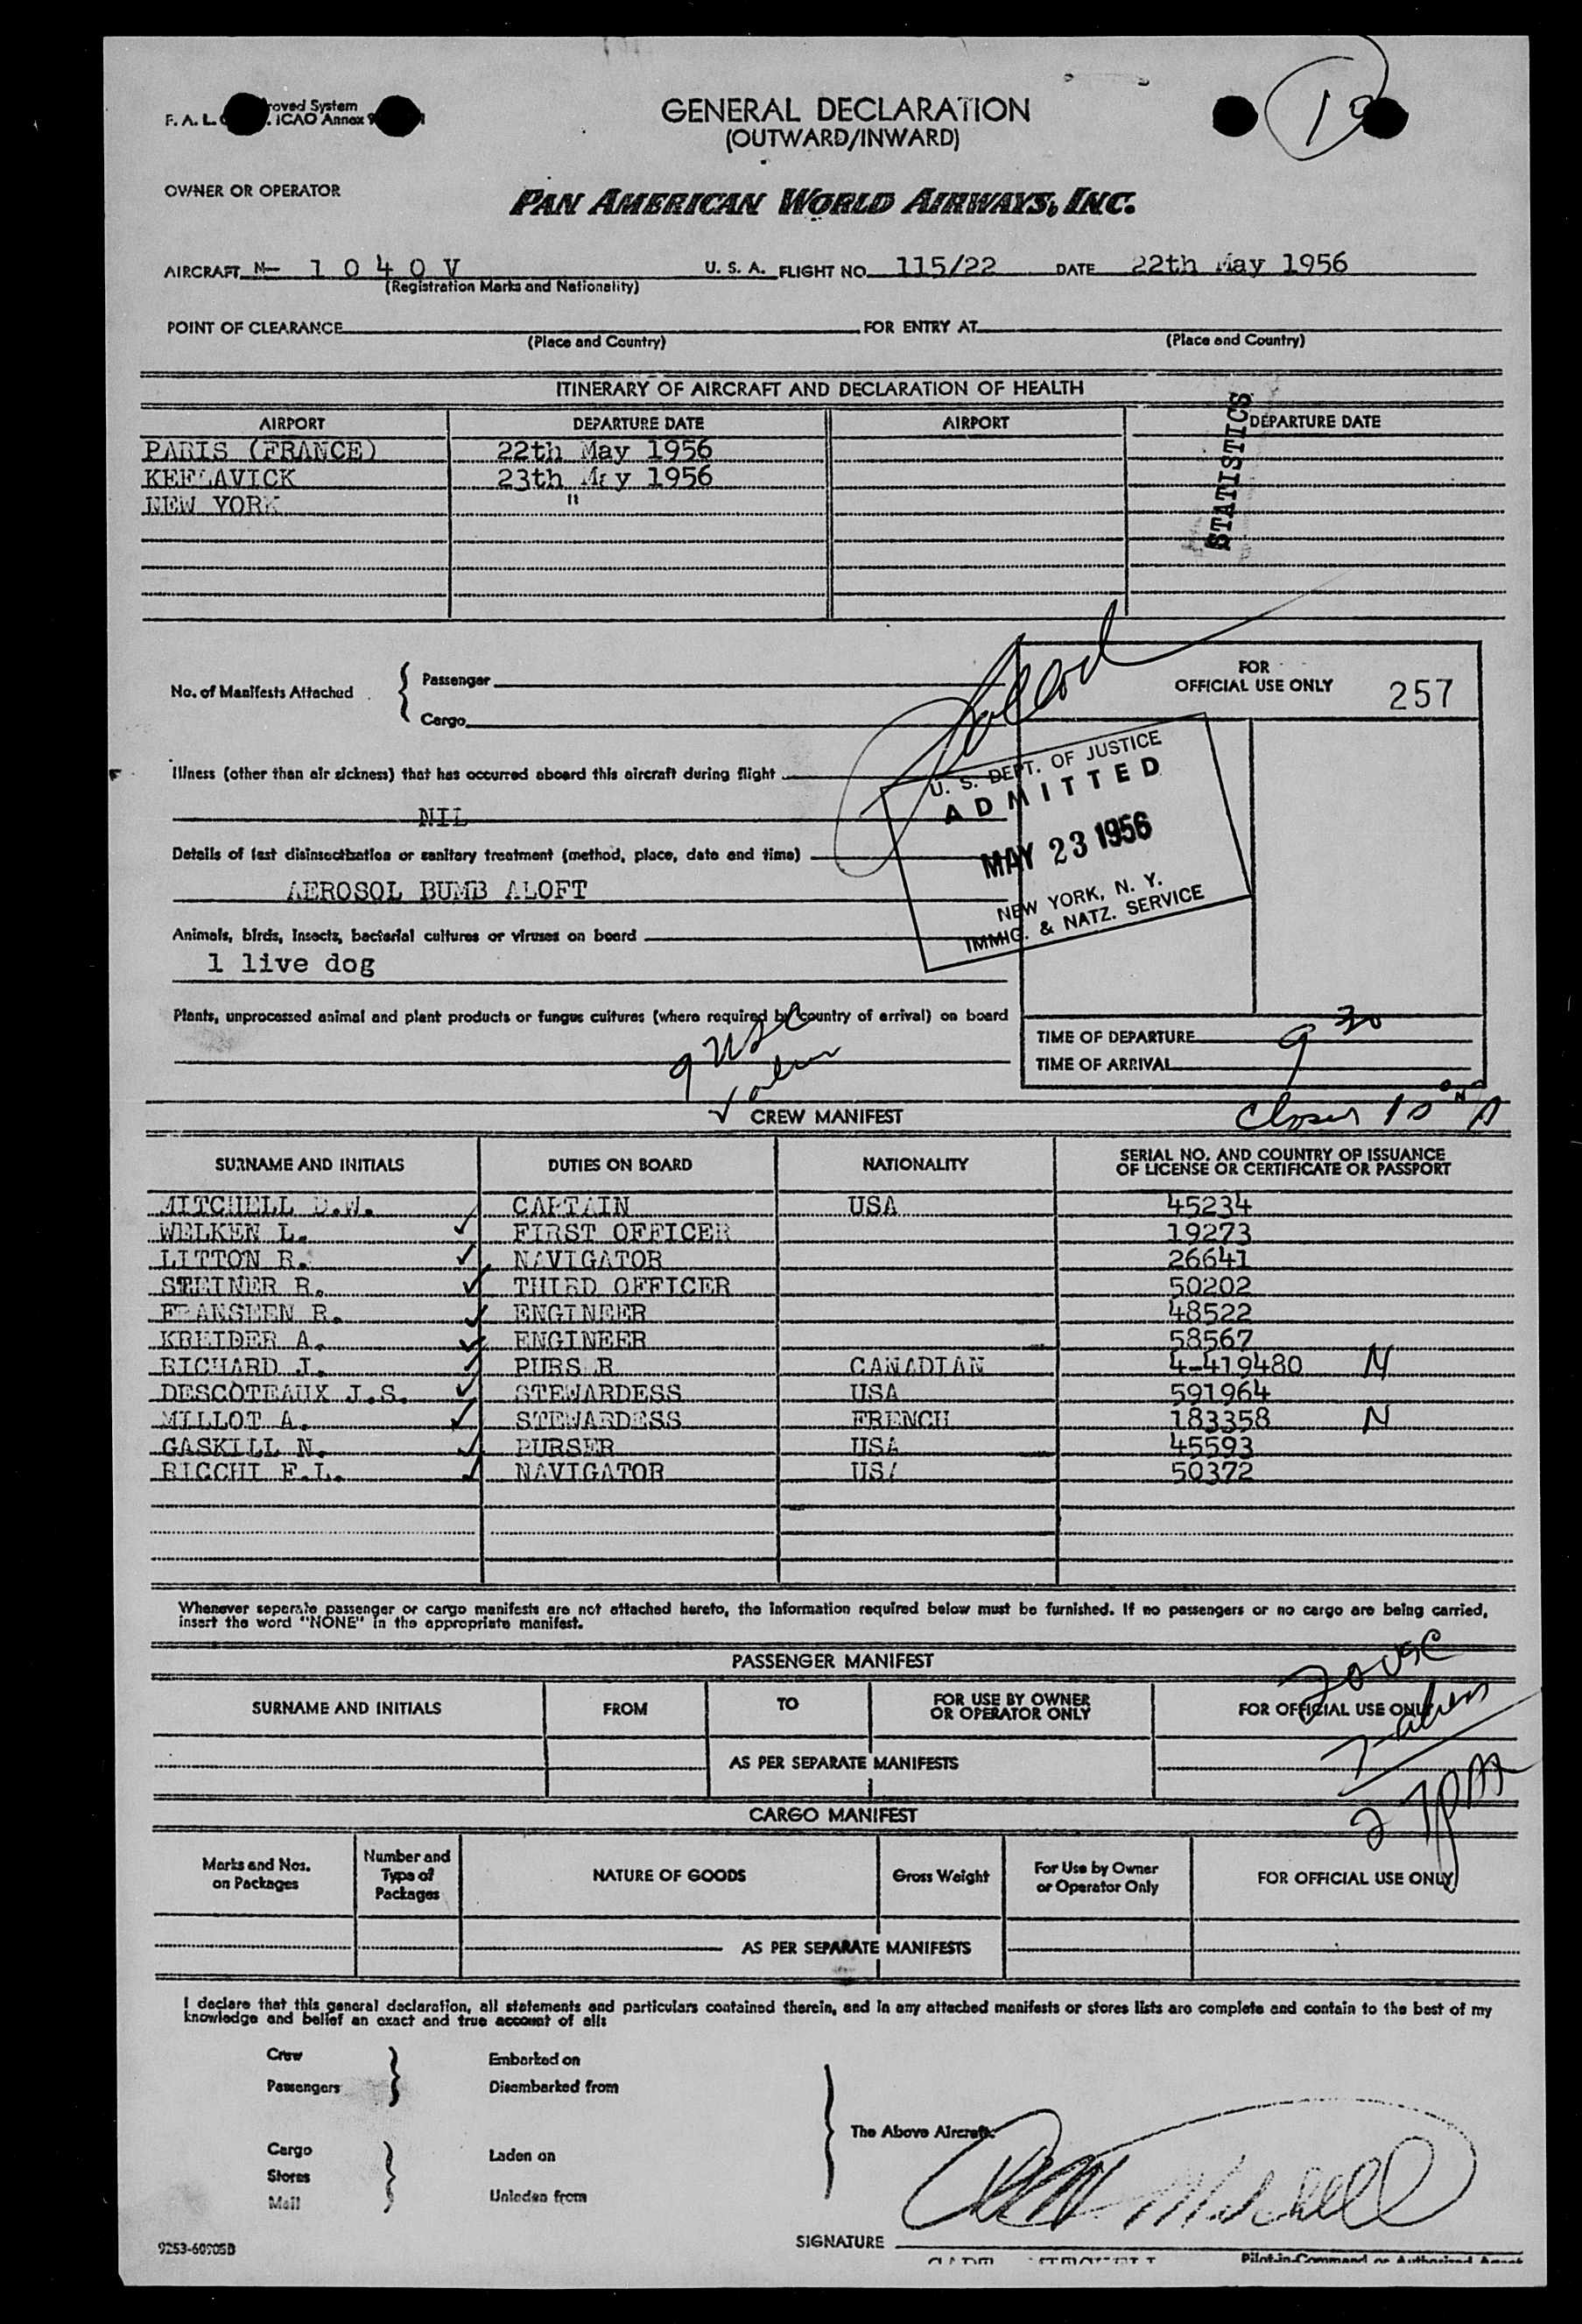 GENERAL DECLARATION
(OUTWARD/INWARD)
F. A. L. roved System
. ICAO Annex 9
OWNER OR OPERATOR
PAN AMERICAN WORLD AIRWAYS, INC.
AIRCRAFT N- 1 0 4 0 V U. S. A. FLIGHT NO. 115/22 DATE 22th May 1956
(Registration Marks and Nationality)
POINT OF CLEARANCE FOR ENTRY AT
(Place and Country) (Place and Country)
ITINERARY OF AIRCRAFT AND DECLARATION OF HEALTH
AIRPORT DEPARTURE DATE AIRPORT DEPARTURE DATE
PARIS (FRANCE) 22th May 1956
KEFLAVICK 23th May 1956
NEW YORK "
STATISTICS
No. of Manifests Attached { Passenger
Cargo
FOR
OFFICIAL USE ONLY 257
Illness (other than air sickness) that has occurred aboard this aircraft during flight
NIL
Details of last disinsectization or sanitary treatment (method, place, date and time)
AEROSOL BUMB ALOFT
Animals, birds, insects, bacterial cultures or viruses on board
1 live dog
Plants, unprocessed animal and plant products or fungus cultures (where required by country of arrival) on board
U. S. DEPT. OF JUSTICE
ADMITTED
MAY 23 1956
NEW YORK, N. Y.
IMMIG. & NATZ. SERVICE
TIME OF DEPARTURE 9 30
TIME OF ARRIVAL
9 USC
CREW MANIFEST
SURNAME AND INITIALS DUTIES ON BOARD NATIONALITY SERIAL NO. AND COUNTRY OF ISSUANCE
OF LICENSE OR CERTIFICATE OR PASSPORT
MITCHELL D.W. CAPTAIN USA 45234
WELKEN L. ✓ FIRST OFFICER 19273
LITTON R. ✓ NAVIGATOR 26641
STEINER R. ✓ THIRD OFFICER 50202
FRANSEEN R. ✓ ENGINEER 48522
KREIDER A. ✓ ENGINEER 58567
RICHARD J. ✓ PURSER CANADIAN 4-419480 N
DESCOTEAUX J.S. ✓ STEWARDESS USA 591964
MILLOT A. ✓ STEWARDESS FRENCH 183358 N
GASKILL N. ✓ PURSER USA 45593
RICCHI F.L. ✓ NAVIGATOR USA 50372
Whenever seperate passenger or cargo manifests are not attached hereto, the information required below must be furnished. If no passengers or no cargo are being carried,
insert the word "NONE" in the appropriate manifest.
PASSENGER MANIFEST
SURNAME AND INITIALS FROM TO FOR USE BY OWNER
OR OPERATOR ONLY FOR OFFICIAL USE ONLY
20 USC
7 alien
27
AS PER SEPARATE MANIFESTS
CARGO MANIFEST
Marks and Nos.
on Packages Number and
Type of
Packages NATURE OF GOODS Gross Weight For Use by Owner
or Operator Only FOR OFFICIAL USE ONLY
AS PER SEPARATE MANIFESTS
I declare that this general declaration, all statements and particulars contained therein, and in any attached manifests or stores lists are complete and contain to the best of my
knowledge and belief an exact and true account of all:
Crew Embarked on
Passengers Disembarked from
The Above Aircraft.
Cargo Laden on
Stores
Mail Unladen from
SIGNATURE
CAPT. MITCHELL Pilot-in-Command or Authorized Agent
9253-60905D